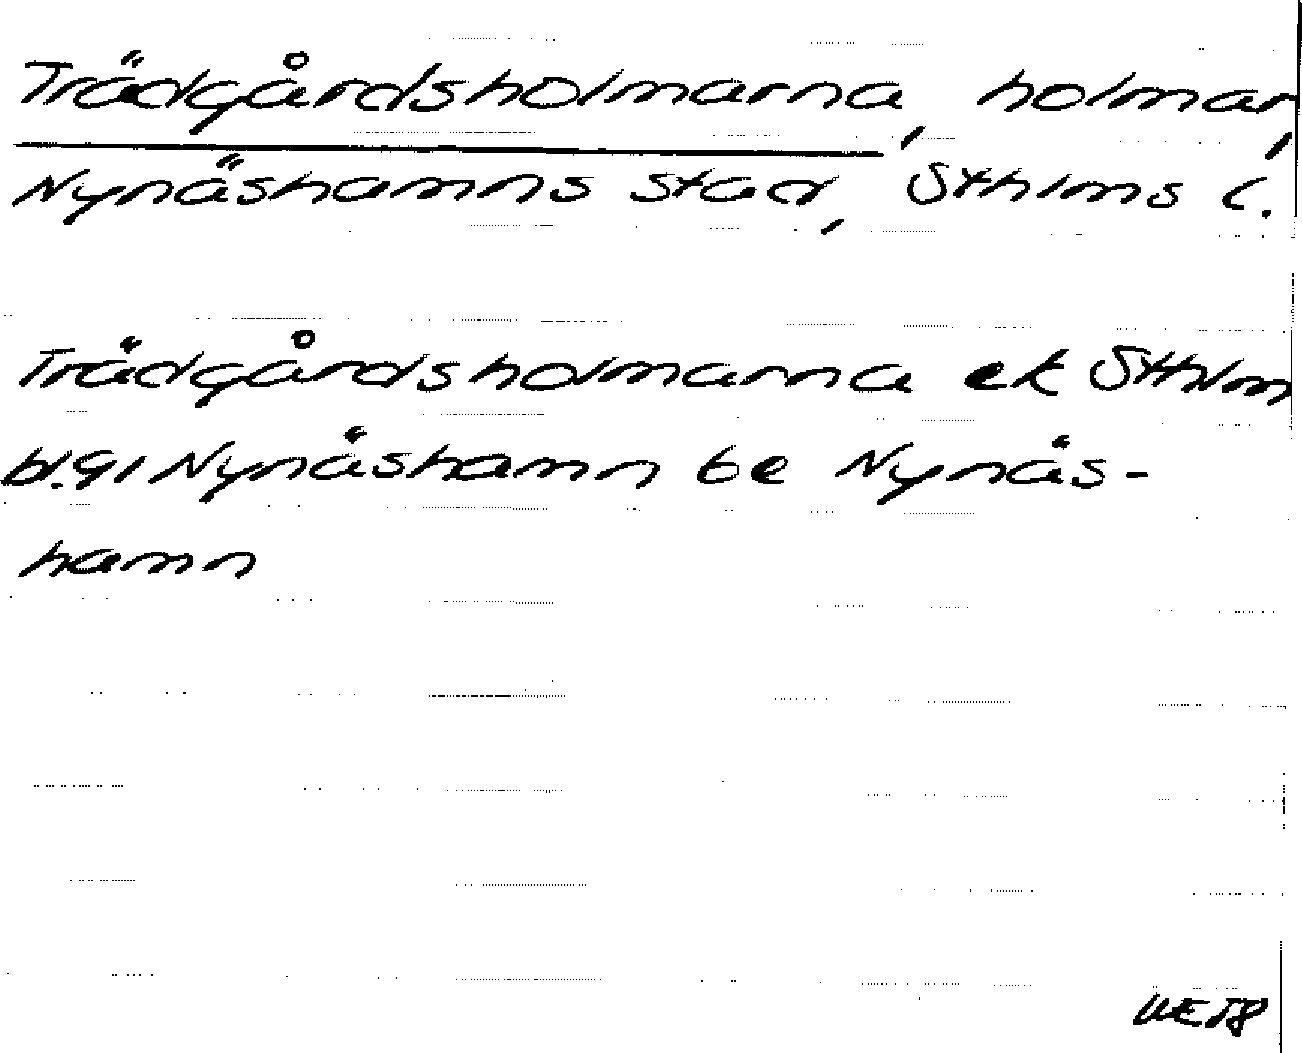 Trädgårdsholmarna, holmar,
Nynäshamns stad, Sthlms l.
Trädgårdsholmarna ek Sthlm
bl.91 Nynäshamn be Nynäs-
hamn